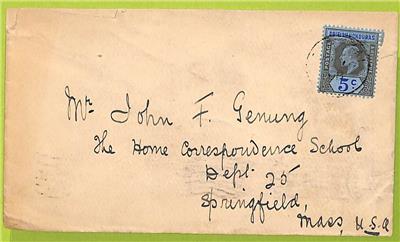 BRITISH HONDURAS
POSTAGE
5c
Mr. John F. Genung
The Home Correspondence School
Dept. 25
Springfield,
Mass, U.S.A